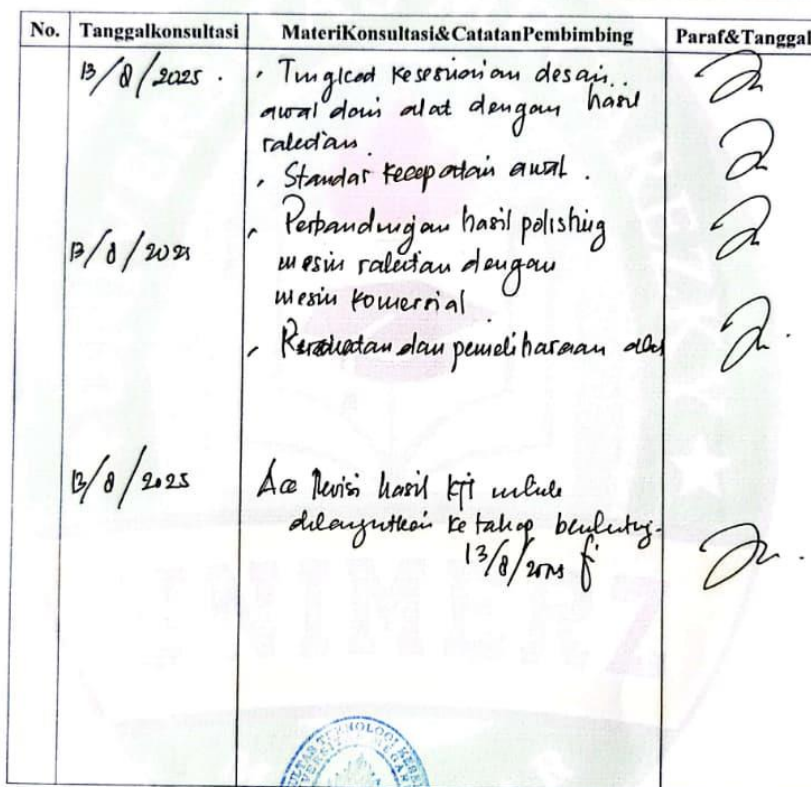 No. Tanggalkonsultasi MateriKonsultasi&CatatanPembimbing Paraf&Tanggal
13/8/2025 . , Tingkat kesesuaian desain
awal dari alat dengan hasil
rakitan.
, Standar kecepatan awal .
, Perbandingan hasil polishing
13/8/2025 mesin rakitan dengan
mesin komersial
, Perawatan dan pemeliharaan alat
13/8/2025 Acc Revisi hasil KTI untuk
dilanjutkan ke tahap berikutnya
13/8/2025